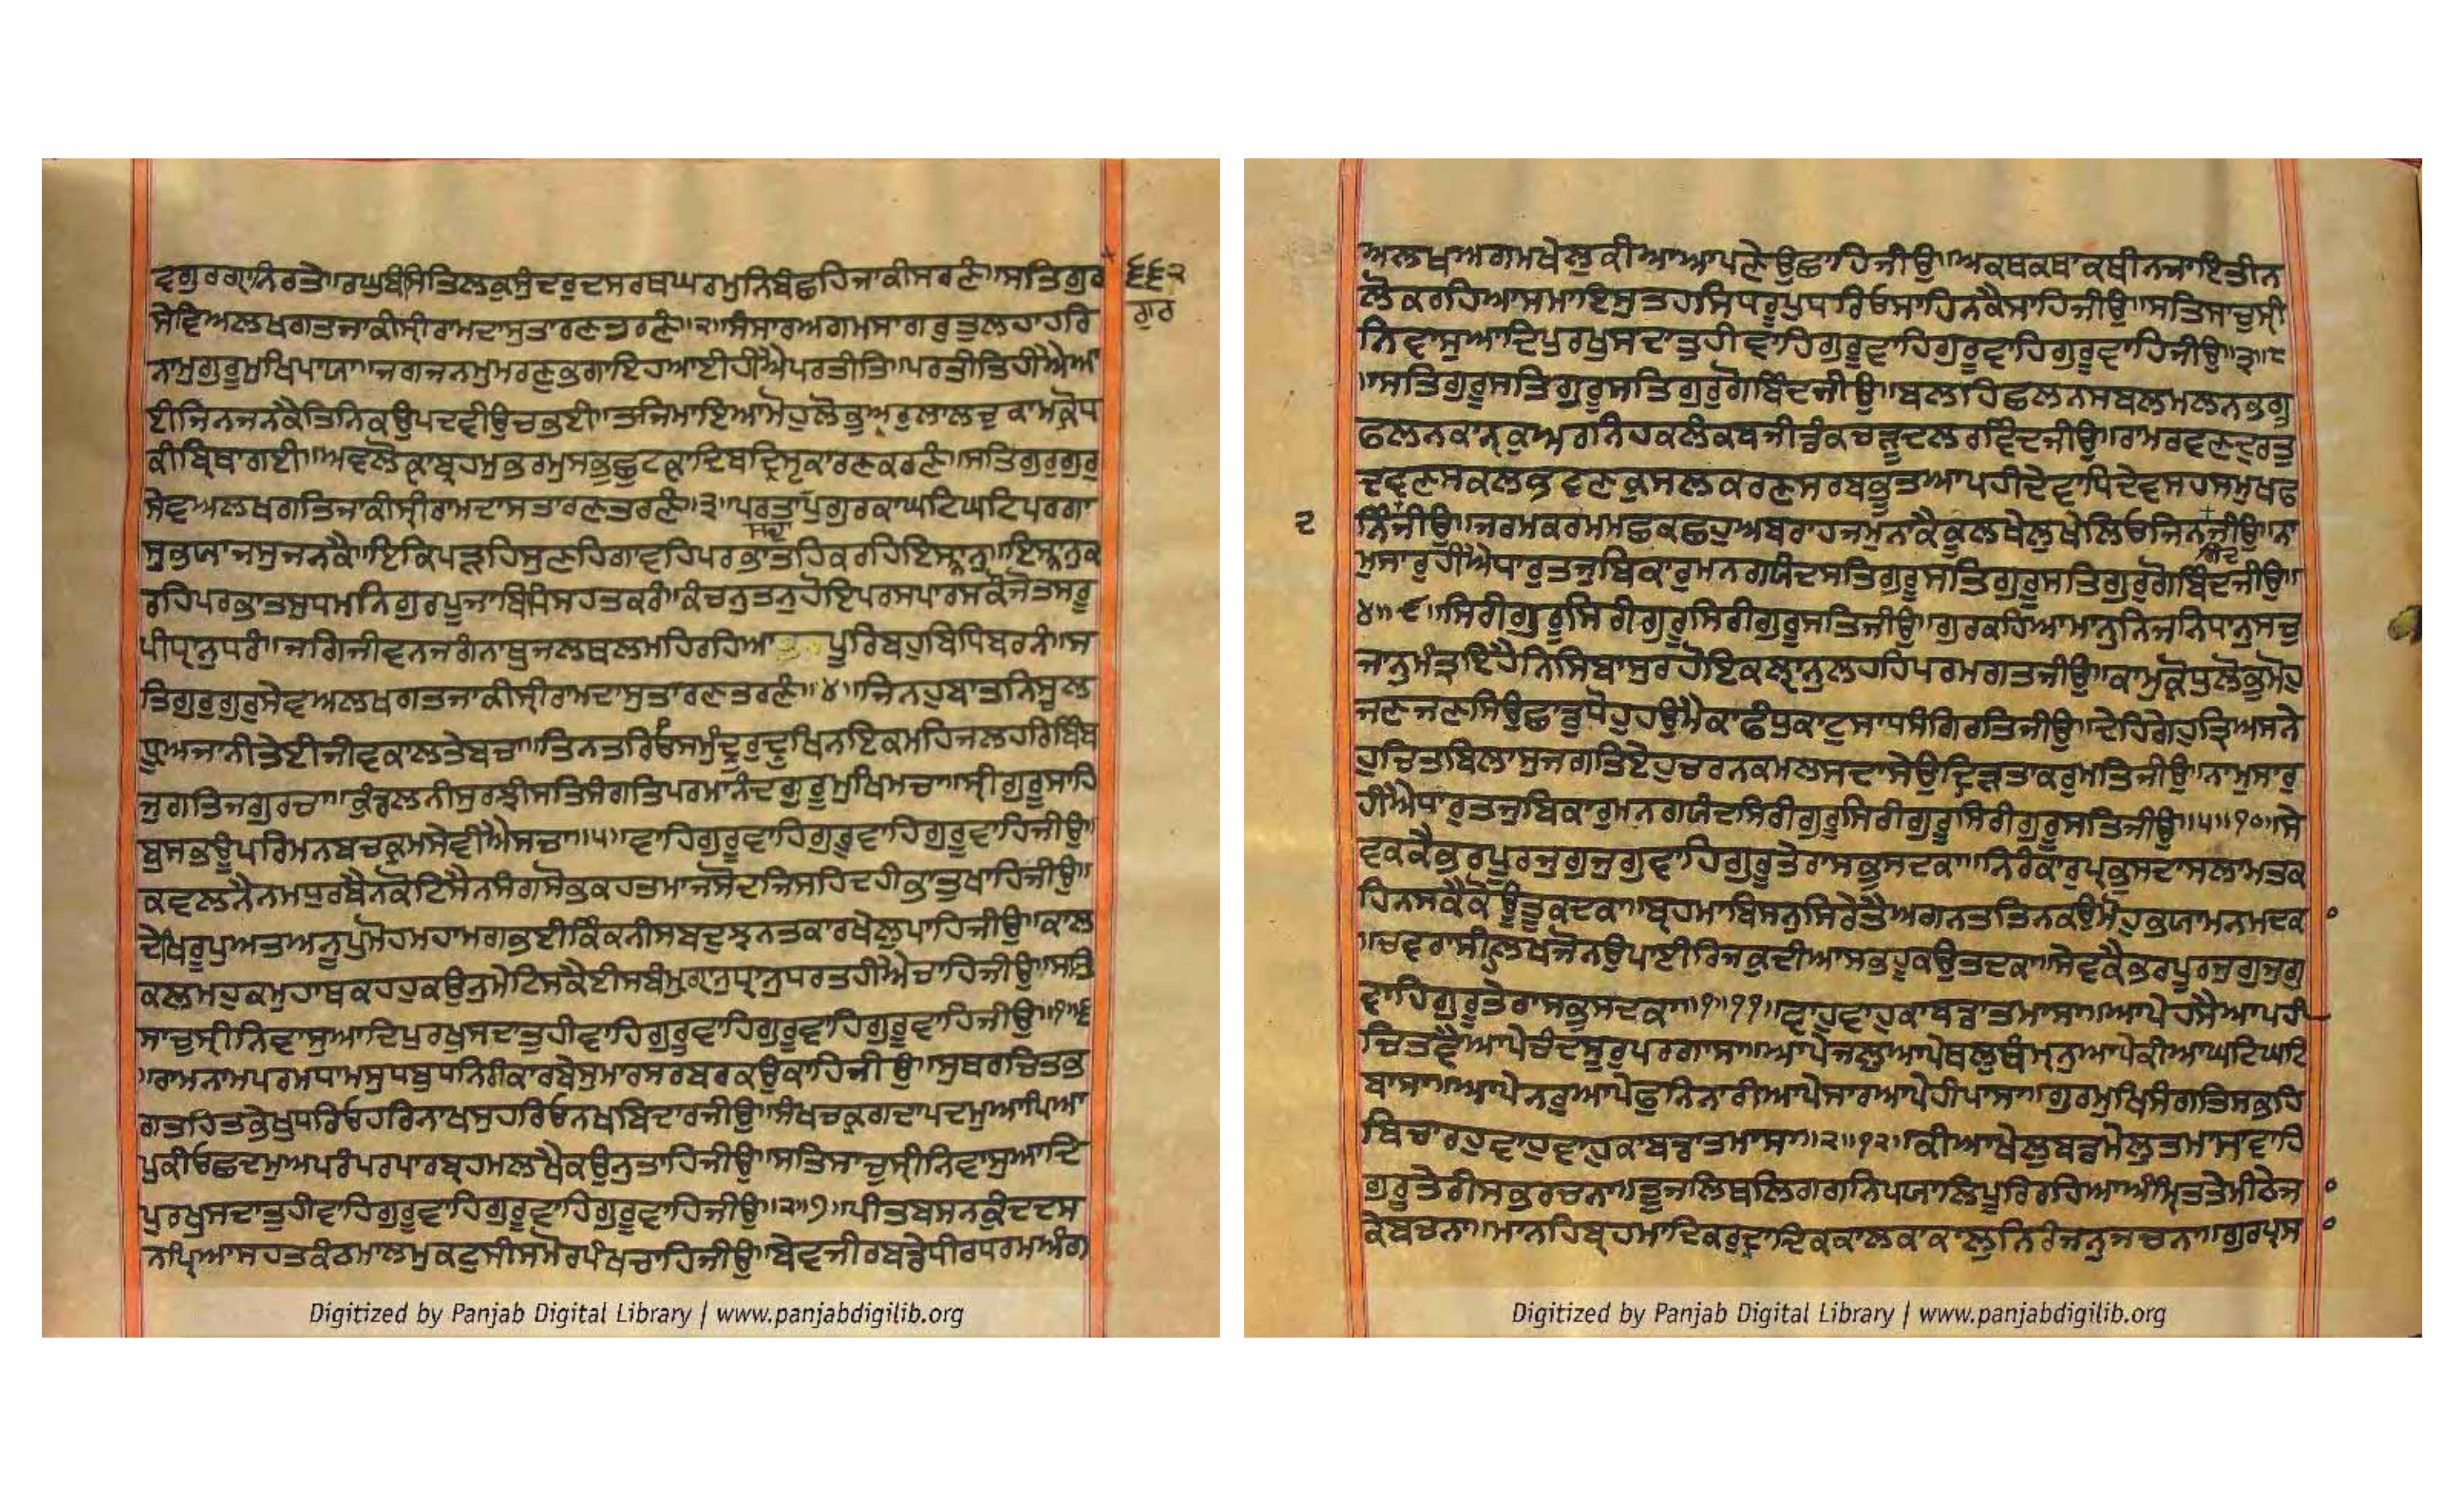 ਵਗੁਰਗ੍ਯਾਨਿਰਤੇ॥ਰਘੁਬੰਸਿਤਿਲਕੁਸੁੰਦਰੁਦਸਰਥਘਰਮੁਨਿਬੰਛਹਿਜਾਕੀਸਰਣੰ॥ਸਤਿਗੁਰ
੬੬੨
ਗੁਰ
ਸੇਵਿਅਲਖਗਤਜਾਕੀਸ੍ਰੀਰਾਮਦਾਸੁਤਾਰਣਤਰਣੰ॥੨॥ਸੰਸਾਰਅਗਮਸਾਗਰੁਤੁਲਹਾਹਰਿ
ਨਾਮੁਗੁਰੂਮੁਖਿਪਾਯਾ॥ਜਗਜਨਮੁਮਰਣੁਭਗਾਇਹਆਈਹੀਐਪਰਤੀਤਿ॥ਪਰਤੀਤਿਹੀਐਆ
ਈਜਿਨਜਨਕੈਤਿਨਿਕਉਪਦਵੀਉਚਭਈ॥ਤਜਿਮਾਇਆਮੋਹੁਲੋਭੁਅਰੁਲਾਲਚੁਕਾਮਕ੍ਰੋਧ
ਕੀਬ੍ਰਿਥਾਗਈ॥ਅਵਲੋਕ੍ਯਾਬ੍ਰਹਮੁਭਰਮੁਸਭੁਛੁਟਕ੍ਯਾਦਿਬਦ੍ਰਿਸ੍ਟਕਾਰਣਕਰਣੰ॥ਸਤਿਗੁਰੁਗੁਰੁ
ਸੇਵਅਲਖਗਤਿਜਾਕੀਸ੍ਰੀਰਾਮਦਾਸਤਾਰਣਤਰਣੰ॥੩॥ਪਰਤਾਪੁਗੁਰਕਾਘਟਿਘਟਿਪਰਗਾ
ਸਦਾ
ਸੁਭਯਾਜਸੁਜਨਕੈ॥ਇਕਿਪੜਹਿਸੁਣਹਿਗਾਵਹਿਪਰਭਾਤਹਿਕਰਹਿਇਸ੍ਨਾਨੁ॥ਇਸ੍ਨਾਨੁਕ
ਰਹਿਪਰਭਾਤਸੁਧਮਨਿਗੁਰਪੂਜਾਬਿਧਿਸਹਤਕਰੰ॥ਕੰਚਨੁਤਨੁਹੋਇਪਰਸਪਾਰਸਕੌਜੋਤਸਰੂ
ਪੀਧ੍ਯਾਨੁਧਰੰ॥ਜਗਿਜੀਵਨਜਗੰਨਾਥੁਜਲਥਲਮਹਿਰਹਿਆ ਪੂਰਿਬਹੁਬਿਧਿਬਰਨੰ॥ਸ
ਤਿਗੁਰੁਗੁਰੁਸੇਵਅਲਖਗਤਜਾਕੀਸ੍ਰੀਰਾਮਦਾਸੁਤਾਰਣਤਰਣੰ॥੪॥ਜਿਨਹੁਬਾਤਨਿਸ੍ਚਲ
ਧ੍ਰੂਅਜਾਨੀਤੇਈਜੀਵਕਾਲਤੇਬਚਾ॥ਤਿਨਤਰਿਓਸਮੁੰਦ੍ਰੁਰੁਦ੍ਰੁਖਿਨਇਕਮਹਿਜਲਹਰਬਿੰਬ
ਜੁਗਤਿਜਗੁਰਚਾ॥ਕੁੰਡਲਨੀਸੁਰਝੀਸਤਿਸੰਗਤਿਪਰਮਾਨੰਦਗੁਰੂਮੁਖਿਮਚਾ॥ਸ੍ਰੀਗੁਰੂਸਾਹਿ
ਬੁਸਭਊਪਰਿਮਨਬਚਕ੍ਰਮਸੇਵੀਐਸਚਾ॥੫॥ਵਾਹਿਗੁਰੂਵਾਹਿਗੁਰੂਵਾਹਿਗੁਰੂਵਾਹਿਜੀਉ॥
ਕਵਲਨੈਨਮਧੁਰਬੈਨਕੋਟਿਸੈਨਸੰਗਸੋਭਕਹਤਮਾਜਸੋਦਜਿਸਹਿਦਹੀਭਾਤੁਖਾਹਿਜੀਉ॥
ਦੇਖਿਰੂਪੁਅਤਅਨੂਪੁਮੋਹਮਹਾਮਗਭਈਕਿੰਕਨੀਸਬਦੁਝਨਤਕਾਰਖੇਲੁਪਾਹਿਜੀਉ॥ਕਾਲ
ਕਲਮਹੁਕਮੁਹਾਥਕਹਹੁਕਉਨੁਮੇਟਿਸਕੈਈਸਬੰਮੁਗ੍ਯਾਨੁਧ੍ਯਾਨੁਧਰਤਹੀਐਚਾਹਿਜੀਉ॥ਸਤਿ
ਸਾਚੁਸ੍ਰੀਨਿਵਾਸੁਆਦਿਪੁਰਖੁਸਦਾਤੁਹੀਵਾਹਿਗੁਰੂਵਾਹਿਗੁਰੂਵਾਹਿਗੁਰੂਵਾਹਿਜੀਉ॥੧॥੬
॥ਰਾਮਨਾਮਪਰਮਧਾਮਸੁਧਬੁਧਨਿਰੀਕਾਰਬੇਸੁਮਾਰਸਰਬਰਕਉਕਾਹਿਜੀਉ॥ਸੁਥਰਚਿਤਭ
ਗਤਹਿਤਭੇਖੁਧਰਿਓਹਰਿਨਾਖਸੁਹਰਿਓਨਖਬਿਦਾਰਜੀਉ॥ਸੰਖਚਕ੍ਰਗਦਾਪਦਮੁਆਪਿਆ
ਪੁਕੀਓਛਦਮੁਅਪਰੰਪਰਪਾਰਬ੍ਰਹਮਲਖੈਕਉਨੁਤਾਹਿਜੀਉ॥ਸਤਿਸਾਚੁਸ੍ਰੀਨਿਵਾਸੁਆਦਿ
ਪੁਰਖੁਸਦਾਤੁਹੀਵਾਹਿਗੁਰੂਵਾਹਿਗੁਰੂਵਾਹਿਗੁਰੂਵਾਹਿਜੀਉ॥੨॥੭॥ਪੀਤਬਸਨਕੁੰਦਦਸ
ਨਪ੍ਰਿਆਸਹਤਕੰਠਮਾਲਮੁਕਟੁਸੀਸਮੋਰਪੰਖਚਾਹਿਜੀਉ॥ਬੇਵਜੀਰਬਡੇਧੀਰਧਰਮਅੰਗ
Digitized by Panjab Digital Library | www.panjabdigilib.org
ਅਲਖਅਗਮਖੇਲੁਕੀਆਆਪਣੇਉਛਾਹਿਜੀਉ॥ਅਕਥਕਥਾਕਥੀਨਜਾਇਤੀਨ
ਲੋਕਰਹਿਆਸਮਾਇਸੁਤਹਸਿਧਰੂਪੁਧਰਿਓਸਾਹਿਨਕੈਸਾਹਿਜੀਉ॥ਸਤਿਸਾਚੁਸ੍ਰੀ
ਨਿਵਾਸੁਆਦਿਪੁਰਖੁਸਦਾਤੁਹੀਵਾਹਿਗੁਰੂਵਾਹਿਗੁਰੂਵਾਹਿਗੁਰੂਵਾਹਿਜੀਉ॥੩॥੮
॥ਸਤਿਗੁਰੂਸਤਿਗੁਰੂਸਤਿਗੁਰੁਗੋਬਿੰਦਜੀਉ॥ਬਲਹਿਛਲਨਸਬਲਮਲਨਭਗੁ
ਫਲਨਕਾਨ੍ਹਕੁਅਰਨਿਹਕਲੰਕਬਜੀਡੰਕਚੜੂਦਲਰਵਿੰਦਜੀਉ॥ਰਾਮਰਵਣਦੁਰਤੁ
ਦਵਣਸਕਲਭਵਣਕੁਸਲਕਰਣਸਰਬਭੂਤਆਪਹੀਦੇਵਾਧਿਦੇਵਸਹਸਮੁਖਫ
੨
ਨਿੰਜੀਉ॥ਜਰਮਕਰਮਮਛਕਛਹੁਅਬਰਾਹਜਮੁਨਾਕੈਕੂਲਖੇਲੁਖੇਲਿਓਜਿਨਜੀਉ॥ਨਾ
ਮੁਸਾਰੁਹੀਐਧਾਰੁਤਜੁਬਿਕਾਰੁਮਨਗਯੰਦਸਤਿਗੁਰੂਸਤਿਗੁਰੂਸਤਿਗੁਰੁਗੋਬਿੰਦਜੀਉ॥
੪॥੯॥ਸਿਰੀਗੁਰੂਸਿਰੀਗੁਰੂਸਿਰੀਗੁਰੂਸਤਿਜੀਉ॥ਗੁਰਕਹਿਆਮਾਨੁਨਿਜਨਿਧਾਨੁਸਚੁ
ਜਾਨੁਮੰਤ੍ਰਇਹੈਨਿਸਿਬਾਸੁਰਹੋਇਕਲ੍ਯਾਨੁਲਹਹਿਪਰਮਗਤਜੀਉ॥ਕਾਮੁਕ੍ਰੋਧੁਲੋਭੁਮੋਹੁ
ਜਣਜਣਸਿਉਛਾਡੁਧੋਹੁਹਉਮੈਕਾਫੰਧੁਕਾਟੁਸਾਧਸੰਗਿਰਤਿਜੀਉ॥ਦੇਹਿਗੇਹੁਤ੍ਰਿਅਸਨੇ
ਹੁਚਿਤਬਿਲਾਸੁਜਗਤਿਏਹੁਚਰਨਕਮਲਸਦਾਸੇਉਦ੍ਰਿੜਤਾਕਰੁਮਤਿਜੀਉ॥ਨਾਮੁਸਾਰੁ
ਹੀਐਧਾਰੁਤਜੁਬਿਕਾਰੁਮਨਗਯੰਦਸਿਰੀਗੁਰੂਸਿਰੀਗੁਰੂਸਿਰੀਗੁਰੂਸਤਿਜੀਉ॥੫॥੧੦॥ਸੇ
ਵਕਕੈਭਰਪੂਰਜੁਗੁਜੁਗੁਵਾਹਿਗੁਰੂਤੇਰਾਸਭੁਸਦਕਾ॥ਨਿਰੰਕਾਰੁਪ੍ਰਭੁਸਦਾਸਲਾਮਤਕ
ਹਿਨਸਕੈਕੋਊਤੂਕਦਕਾ॥ਬ੍ਰਹਮਾਬਿਸਨੁਸਿਰੇਤੈਅਗਨਤਤਿਨਕਉਮੋਹੁਭਯਾਮਨਮਦਕ
॥ਚਵਰਾਸੀਲਖਜੋਨਉਪਾਈਰਿਜਕੁਦੀਆਸਭਹੂਕਉਤਦਕਾ॥ਸੇਵਕੈਭਰਪੂਰਜੁਗੁਜੁਗੁ
ਵਾਹਿਗੁਰੂਤੇਰਾਸਭੁਸਦਕਾ॥੧॥੧੧॥ਵਾਹੁਵਾਹੁਕਾਬਡਾਤਮਾਸਾ॥ਆਪੇਹਸੈਆਪਹੀ
ਚਿਤਵੈਆਪੇਚੰਦਸੂਰੁਪਰਗਾਸਾ॥ਆਪੇਜਲੁਆਪੇਥਲੁਥੰਮ੍ਹਨੁਆਪੇਕੀਆਘਟਿਘਟਿ
ਬਾਸਾ॥ਆਪੇਨਰੁਆਪੇਫੁਨਿਨਾਰੀਆਪੇਸਾਰਆਪੇਹੀਪਾਸਾ॥ਗੁਰਮੁਖਿਸੰਗਤਿਸਭਹਿ
ਬਿਚਾਰਹੁਵਾਹੁਵਾਹੁਕਾਬਡਾਤਮਾਸਾ॥੨॥੧੨॥ਕੀਆਖੇਲੁਬਡਮੇਲੁਤਮਾਸਾਵਾਹਿ
ਗੁਰੂਤੇਰੀਸਭਰਚਨਾ॥ਤੂਜਲਿਥਲਿਗਗਨਿਪਯਾਲਿਪੂਰਿਰਹਿਆਅੰਮ੍ਰਿਤਤੇਮੀਠੇਜ
ਕੇਬਚਨਾ॥ਮਾਨਹਿਬ੍ਰਹਮਾਦਿਕਰੁਦ੍ਰਾਦਿਕਕਾਲਕਾਕਾਲੁਨਿਰੰਜਨੁਜਚਨਾ॥ਗੁਰਪ੍ਰਸ
Digitized by Panjab Digital Library | www.panjabdigilib.org